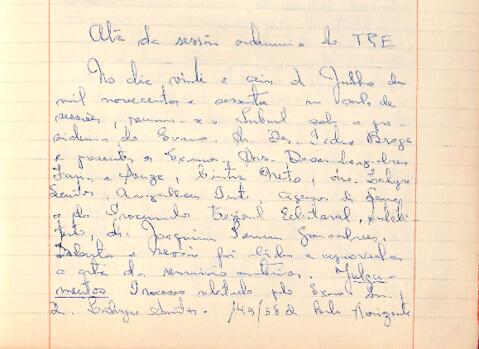 Ata da sessão ordinaria do TRE
No dia vinte e seis de Julho de
mil novecentos e sessenta na sala de
sessões, reuniu-se o Tribunal sob a pre-
sidencia do Exmo. Sr. Des. Pedro Braga
e presentes os Exmos. Srs. Desembargadores
Faria e Souza, Cintra Neto, drs. Lahyre
Santos,
e do Procurador Regional Eleitoral, substi-
tuto, dr. Joaquim Ferreira Gonçalves.
Aberta a sessão foi lida e aprovada
a ata da sessão anterior. Julga-
mentos Processo relatado pelo Exmo Sr.
Dr. Lahyre Santos. 149/58 de Belo Horizonte